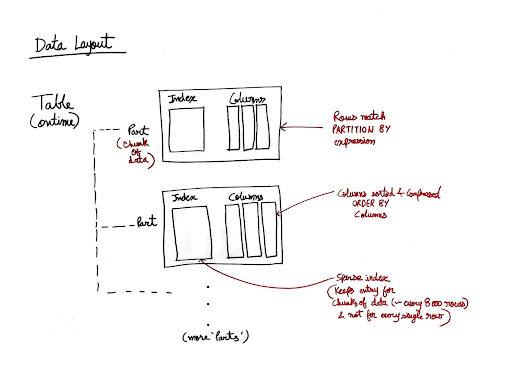 Data Layout
Table
(ontime)
Part
(chunk
of
data)
Index
Columns
Rows match
PARTITION BY
expression
Part
Index
Columns
Columns sorted & compressed
ORDER BY
Columns
Sparse index
(Keeps entry for
chunks of data (~ every 8000 rows)
& not for every single row)
(more 'Parts')